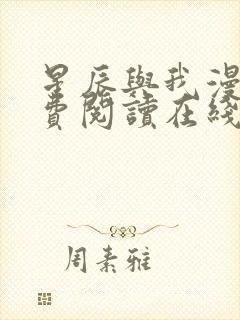 星辰與我漫
費閱讀在綫
周素雅